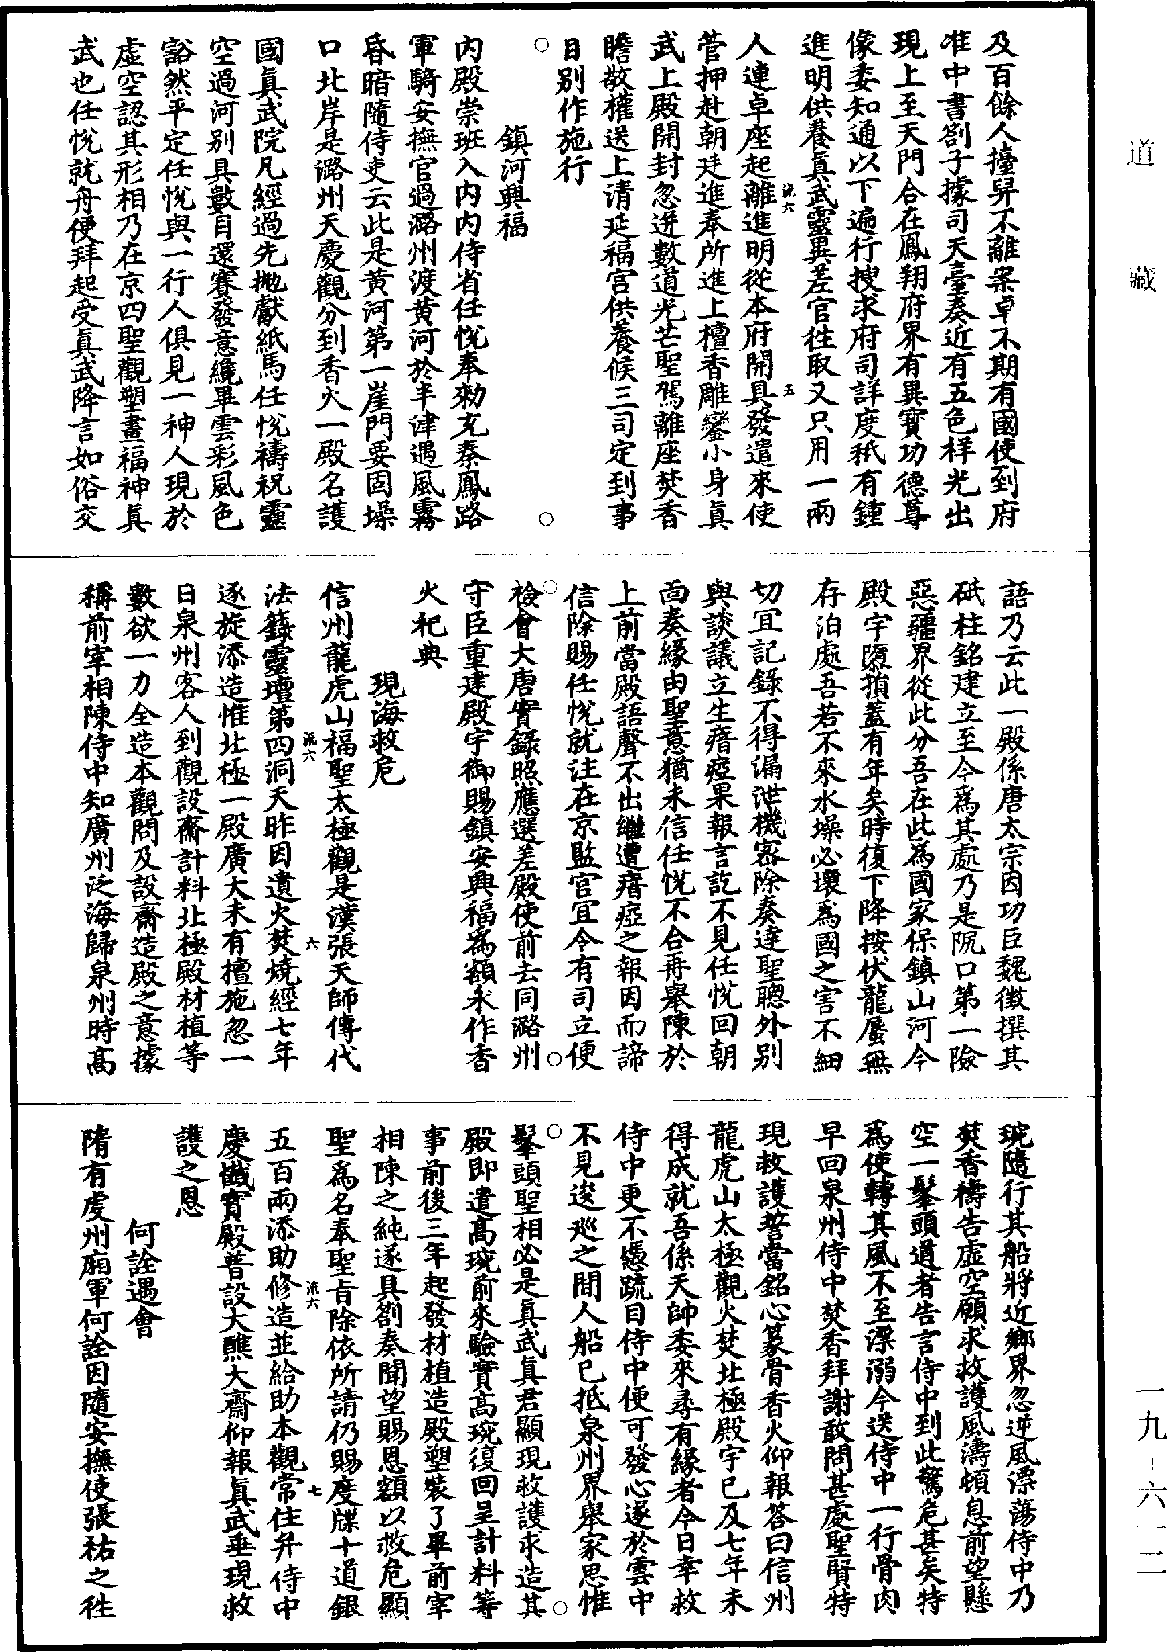 及百餘人擡舁不離案卓不期有國使到府
准中書劄子據司天臺奏近有五色祥光出
現上至天門合在鳳翔府界有異寶功德尊
像委知通以下遍行搜求府司詳度秖有鍾
進明供養真武靈異差官往取又只用一兩
人連卓座起離進明從本府開具發遣來使
管押赴朝廷進奉所進上檀香雕鑾小身真
武上殿開封忽迸數道光芒聖駕離座焚香
瞻敬權送上清延福宮供養候三司定到事
目別作施行
鎮河興福
內殿崇班入內內侍省任悅奉勑充秦鳳路
軍騎安撫官過潞州渡黃河於半津遇風霧
昏暗隨侍吏云此是黃河第一崖門要固堁
口北岸是潞州天慶觀分到香火一殿名護
國真武院凡經過先拋獻紙馬任悅禱祝靈
空過河別具數目還賽發意纔畢雲彩風色
豁然平定任悅與一行人俱見一神人現於
虛空認其形相乃在京四聖觀塑畫福神真
武也任悅就舟便拜起受真武降言如俗交
語乃云此一殿係唐太宗因功臣魏徵撰其
砥柱銘建立至今為其處乃是阮口第一險
惡疆界從此分吾在此為國家保鎮山河今
殿宇隳損蓋有年矣時復下降按伏龍蜃無
存泊處吾若不來水堁必壞為國之害不細
切宜記錄不得漏泄機密除奏達聖聰外別
與談議立生瘖瘂果報言訖不見任悅回朝
面奏緣由聖意猶未信任悅不合再舉陳於
上前當殿語聲不出繼遭瘖瘂之報因而諦
信除賜任悅就注在京監官宜令有司立便
檢會大唐實錄照應選差殿使前去同潞州
守臣重建殿宇御賜鎮安興福為額永作香
火祀典
現海救危
信州龍虎山福聖太極觀是漢張天師傳代
法籙靈壇第四洞天昨因遺火焚燒經七年
逐旋添造惟北極一殿廣大未有擅施忽一
日泉州客人到觀設齋計料北極殿材植等
數欲一力全造本觀問及設齋造殿之意據
稱前宰相陳侍中知廣州泛海歸泉州時高
琬隨行其船將近鄉界忽逆風漂蕩侍中乃
焚香禱告虛空願求救護風濤頓息前望懸
空一鬅頭道者告言侍中到此驚危甚矣特
為使轉其風不至漂溺今送侍中一行骨肉
早回泉州侍中焚香拜謝敢問甚處聖賢特
現救護誓當銘心篆骨香火仰報答曰信州
龍虎山太極觀火焚北極殿宇已及七年未
得成就吾係天帥委來尋有緣者今日幸救
侍中更不憑疏目侍中便可發心遂於雲中
不見逡巡之間人船已抵泉州界舉家思惟
鬅頭聖相必是真武真君顯現救護求造其
殿即遣高琬前來驗實高琬復回呈計料等
事前後三年起發材植造殿塑裝了畢前宰
相陳之純遂具劄奏聞望賜恩額以救危顯
聖為名奉聖旨除依所請仍賜度牒十道銀
五百兩添助修造並給助本觀常住并侍中
慶懺寶殿普設大醮大齋仰報真武垂現救
護之恩
何詮遇會
隋有虔州廂軍何詮因隨安撫使張祐之往
流六
五
流六
六
流六
七
道藏
一九-六一二